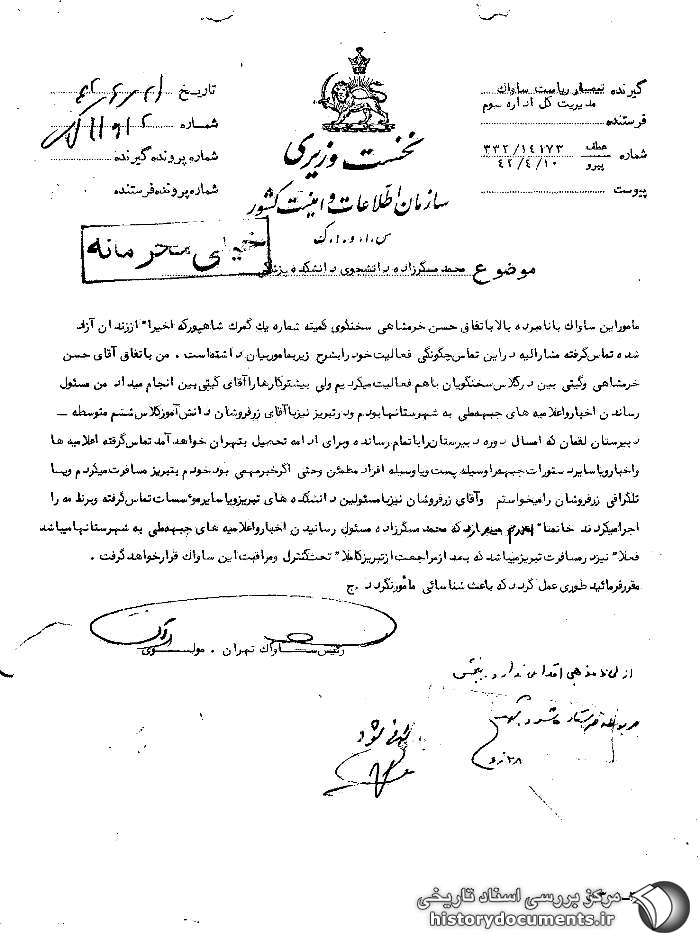 گیرنده تیمسار ریاست ساواک
مدیریت کل اداره سوم
فرستنده
شماره عطف ۳۳۲/۱٤۱۷۳
پیرو ٤۲/٤/۱۰
پیوست
نخست وزیری
سازمان اطلاعات و امنیت کشور
س.ا.و.ا.ک
تاریخ
شماره
شماره پرونده گیرنده
شماره پرونده فرستنده
خیلی محرمانه
موضوع محمد مسگرزاده دانشجوی دانشکده پزشکی
مامور این ساواک بانامبرده بالا باتفاق حسن خرمشاهی سخنگوی کمیته شماره یک گمرک شاهپور که اخیرا" از زندان آزاد
شده تماس گرفته مشارالیه در این تماس چگونگی فعالیت خود را بشرح زیر بمامور بیان داشته است . من باتفاق آقای حسن
خرمشاهی و گیتی بین در کلاس سخنگویان باهم فعالیت میکردیم ولی بیشتر کارها را آقای گیتی بین انجام میداد من مسئول
رساندن اخبار و اعلامیه های جبهه ملی به شهرستانها بودم و در تبریز نیز با آقای زرفروشان دانش آموز کلاس ششم متوسطه –
دبیرستان لقمان که امسال دوره دبیرستان را باتمام رسانده و برای ادامه تحصیل بتهران خواهد آمد تماس گرفته اعلامیه ها
و اخبار و یا سایر دستورات جبهه را وسیله پست و یا وسیله افراد مطمئن وحتی اگر خبر مهمی بود خودم بتبریز مسافرت میکردم و یا
تلگرافی زرفروشان را میخواستم و آقای زرفروشان نیز با مسئولین دانشکده های تبریز و یا سایر موسسات تماس گرفته و برنامه را
اجرا میکردند خاتمتا" میدارد که محمد مسگرزاده مسئول رسانیدن اخبار و اعلامیه های جبهه ملی به شهرستانها میباشد
فعلا" نیز در مسافرت تبریز میباشد که بعد از مراجعت از تبریز کاملا" تحت کنترل و مراقبت این ساواک قرار خواهد گرفت .
مقرر فرمائید طوری عمل گردد که باعث شناسائی مامور نگردد . ج
رئیس ساواک تهران . مولوی
از لحاظ مذهبی اقدامی ندارد
شود
مرکز بررسی اسناد تاریخی
historydocuments.ir